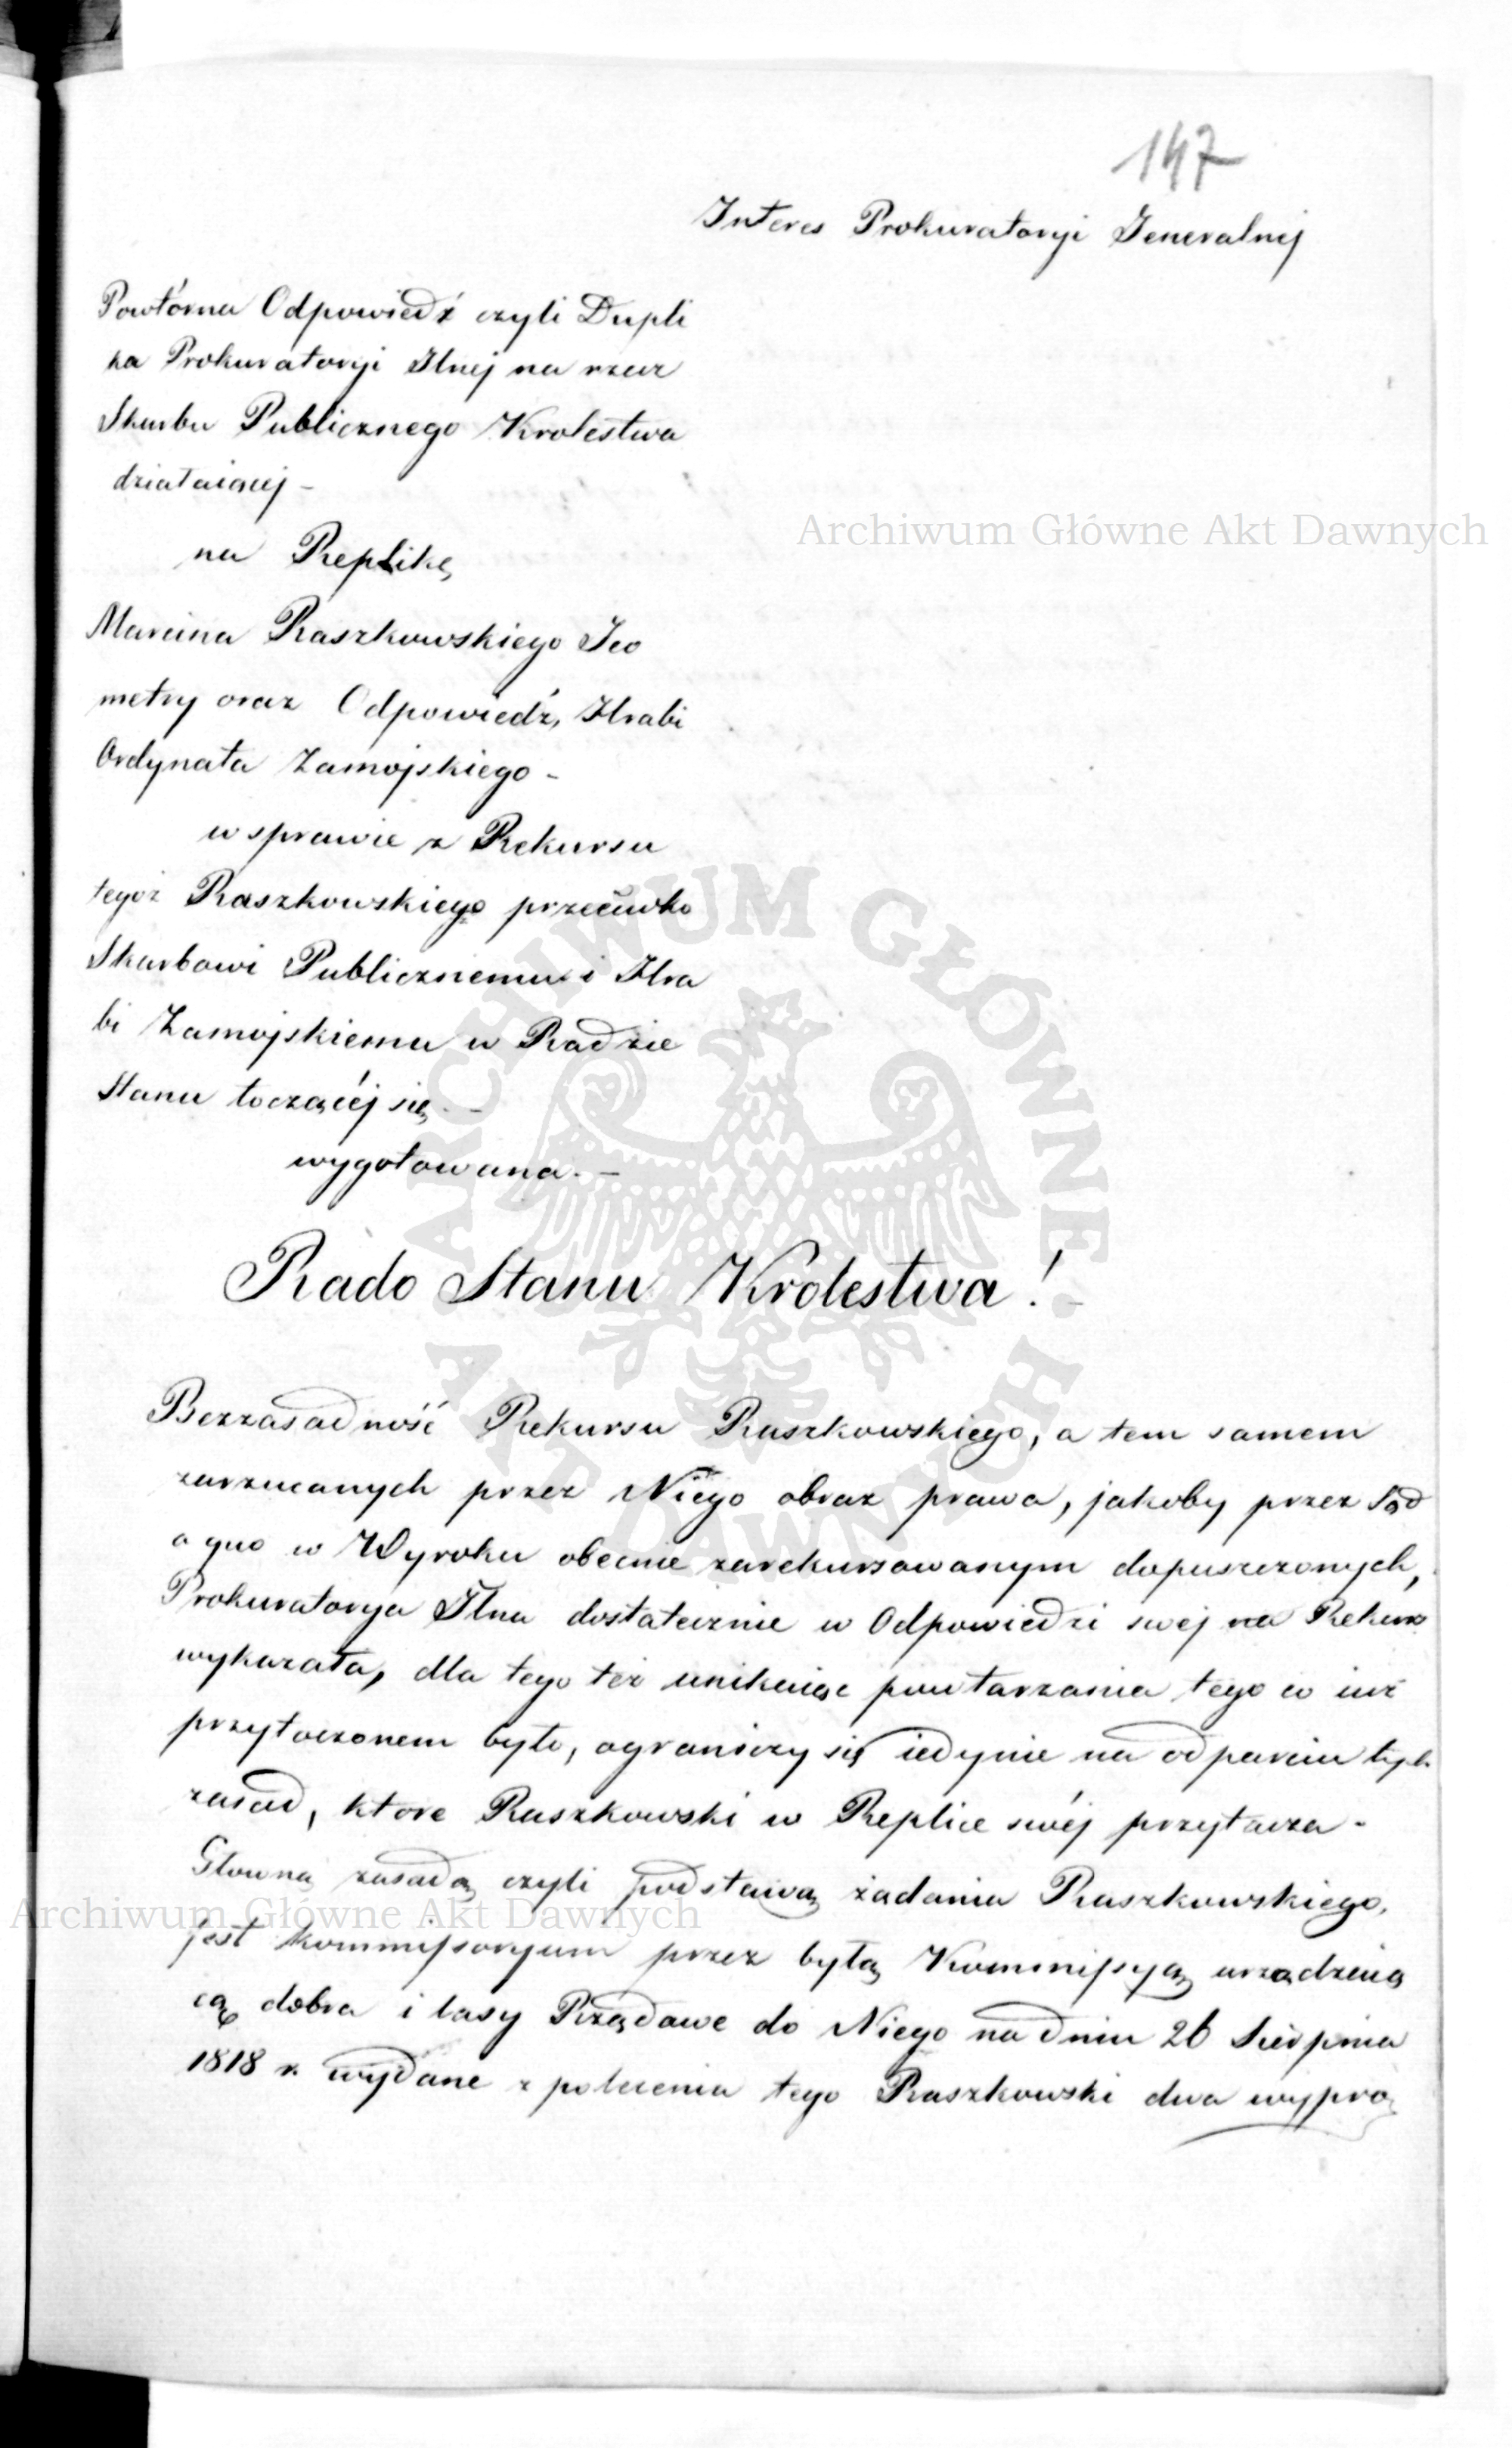 147
Interes Prokuratoryi Jeneralnej
Powtórna Odpowiedź czyli Dupli
ka Prokuratoryi Jlnej na rzecz
Skarbu Publicznego Krolestwa
działaiącej –
na Replikę
Marcina Raszkowskiego Jeo
metry oraz Odpowiedź, Hrabi
Ordynata Zamojskiego –
w sprawie z Rekursu
tegoż Raszkowskiego przeciwko
Skarbowi Publicznemu i Hra
bi Zamojskiemu w Radzie
Stanu toczącéj się –
wygotowana. –
Rado Stanu Krolestwa! –
Bezzasadność Rekursu Raszkowskiego, a tem samem
zarzucanych przez Niego obraz prawa, jakoby przez Sąd
a quo w Wyroku obecnie zarekursowanym dopuszczonych,
Prokuratorya Jlna dostatecznie w Odpowiedzi swej na Rekurs
wykazała, dla tego też unikaiąc powtarzania tego co iuż
przytoczonem było, ograniczy się iedynie na odparciu tych
zasad, ktore Raszkowski w Replice swéj przytacza –
Głowną zasadą czyli podstawą żadania Raszkowskiego,
jest kommissoryum przez byłą Kommissyą urządzaią
cą dobra i lasy Rządowe do Niego na dniu 26 Sierpnia
1818 r. wydane z polecenia tego Raszkowski dwa wypro
Archiwum Główne Akt Dawnych
Archiwum Główne Akt Dawnych
ARCHIWUM GŁÓWNE AKT DAWNYCH